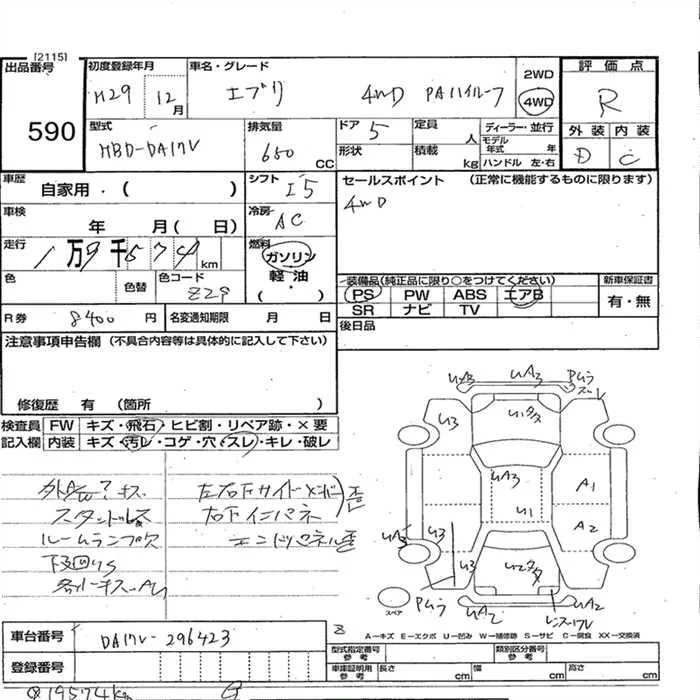 [2115]
出品番号 初度登録年月 車名・グレード 2WD 評価点
H29 12月 エブリ 4WD PAハイルーフ 4WD R
590 型式 排気量 ドア 定員 ディーラー・並行 外装 内装
HBD-DA17V 650 CC 5 人 モデル年式 年 D C
形状 積載 kg ハンドル 左・右
車歴 自家用・( ) シフト I5 セールスポイント (正常に機能するものに限ります)
車検 年 月( 日) 冷房 AC 4WD
走行 1万9千574km 燃料 ガソリン 軽・油 ・( )
色 色替 色コード Z29
装備品(純正品に限り○をつけてください) 新車保証書
PS PW ABS エアB 有・無
SR ナビ TV
R券 8400円 名変通知期限 月 日 後日品
注意事項申告欄 (不具合内容等は具体的に記入して下さい)
修復歴 有 (箇所 )
検査員 FW キズ・飛石・ヒビ割・リペア跡・×要
記入欄 内装 キズ・汚レ・コゲ・穴・スレ・キレ・破レ
ルームランプ欠
左右下サイドメンバー 歪
右下インパネ
エンドパネル歪
UA3
U3
UA3
U1
A1
A2
UA3
U3
U3
UA2
UA2
スペア
A−キズ E−エクボ U−凹み W−補修跡 S−サビ C−腐食 XX−交換済
車台番号 DA17V-296423
登録番号
型式指定番号 参考 類別区分番号 参考
車庫証明用 参考 長さ cm 幅 cm 高さ cm
19574km